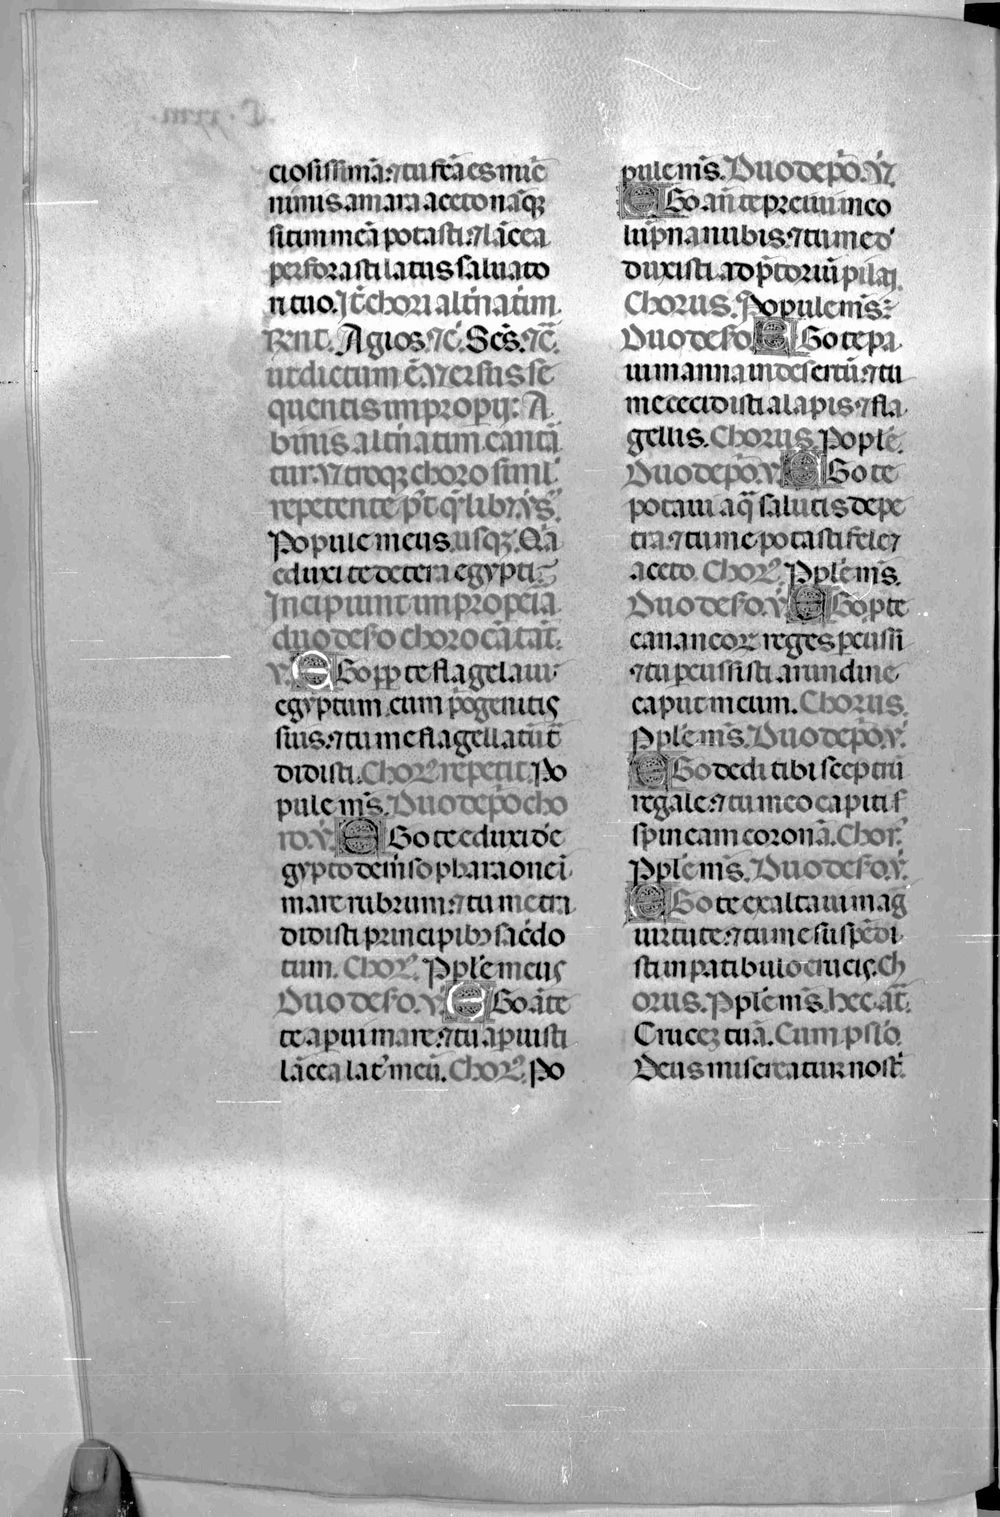 ciosissimā: ⁊ tu fc̄a es mic̄
nimis amara aceto nāqꝫ
sitim meā potasti: ⁊ lācea
perforasti latus saluato
ri tuo. Itē chori altn̄atim
Rn̄t. Agios. ⁊c̄. Scs̄. ⁊c̄.
ut dictum ē. Versus se
quentis impropij: A
binis altn̄atim cantā
tur. Vtroqꝫ choro simł
repetente pt̄ qł̄libꝫ ỹs̄.
Popule meus. usqꝫ. Qāa
eduxi te de terra egypti
Incipiunt impropēia
duo de fo choro cātāt.
℣. Ego pp̄ te flagelaui
egyptum cum p̄ogenitis
suis: ⁊ tu me flagellatūt̄
didisti. Chor̄ repetit. Po
pule ms̄. Duo de p̄o cho
ro. ℣. Ego te eduxi de
gypto demso pharaone ī
mare rubrum: ⁊ tu me tra
didisti principibꝫ sac̄do
tum. Chor̄. Pple meus
Duo de fo. ℣. Ego āte
te apui mare: ⁊ tu apuisti
lācea lat᷑ meū. Chor̄. Po
pule ms̄. Duo de p̄o. ℣.
Ego an̄ te preiui in co
lūpna nubis: ⁊ tu me d᷑
duxisti ad p̄toriū pilaı.
Chorus. Popule ms̄.
Duo de fo. Ego te pa
ui manna in desertū: ⁊ tu
me cecidisti alapis ⁊ fla
gellis. Chorus. Pople.
Duo de p̄o. ℣. Ego te
potaui aq̄ salutis de pe
tra: ⁊ tu me potasti felle ⁊
aceto. Chor̄. Pple ms̄.
Duo de fo. ℣. Ego p̄ te
cananeoꝝ reges pcussi
⁊ tu pcussisti arundine
caput meum. Chorus.
Pple ms̄. Duo de p̄o. ℣.
Ego dedi tibi sceptrū
regale: ⁊ tu meo capiti s
spineam coronā. Chor̄.
Pple ms̄. Duo de fo. ℣.
Ego te exaltaui maḡ
uirtute: ⁊ tu me suspēdi
sti in patibulo crucis. Ch
orus. Pple ms̄. hec āt.
Crucē tuā. Cum pslo.
Deus misereatur nostr̄.